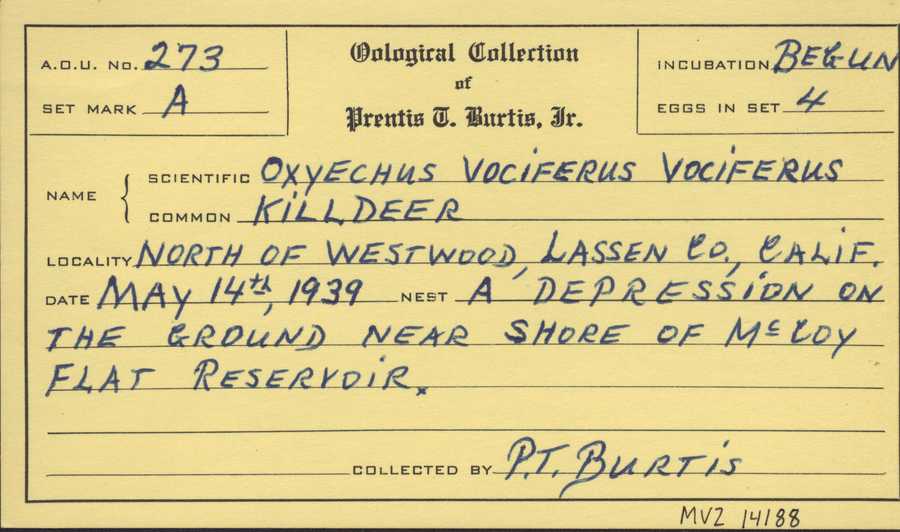 A.O.U. No. 273
SET MARK A
Oological Collection
of
Prentis T. Burtis, Jr.
INCUBATION BEGUN
EGGS IN SET 4
NAME
SCIENTIFIC OXYECHUS VOCIFERUS VOCIFERUS
COMMON KILLDEER
LOCALITY NORTH OF WESTWOOD, LASSEN CO., CALIF.
DATE MAY 14th, 1939 NEST A DEPRESSION ON
THE GROUND NEAR SHORE OF McCOY
FLAT RESERVOIR.
COLLECTED BY P.T. BURTIS
MVZ 14188